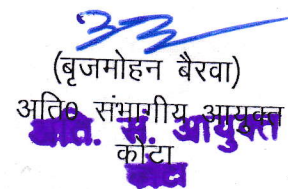 (बृजमोहन बैरवा)
अति० संभागीय आयुक्त
अति. सं. आयुक्त
कोटा
कोटा